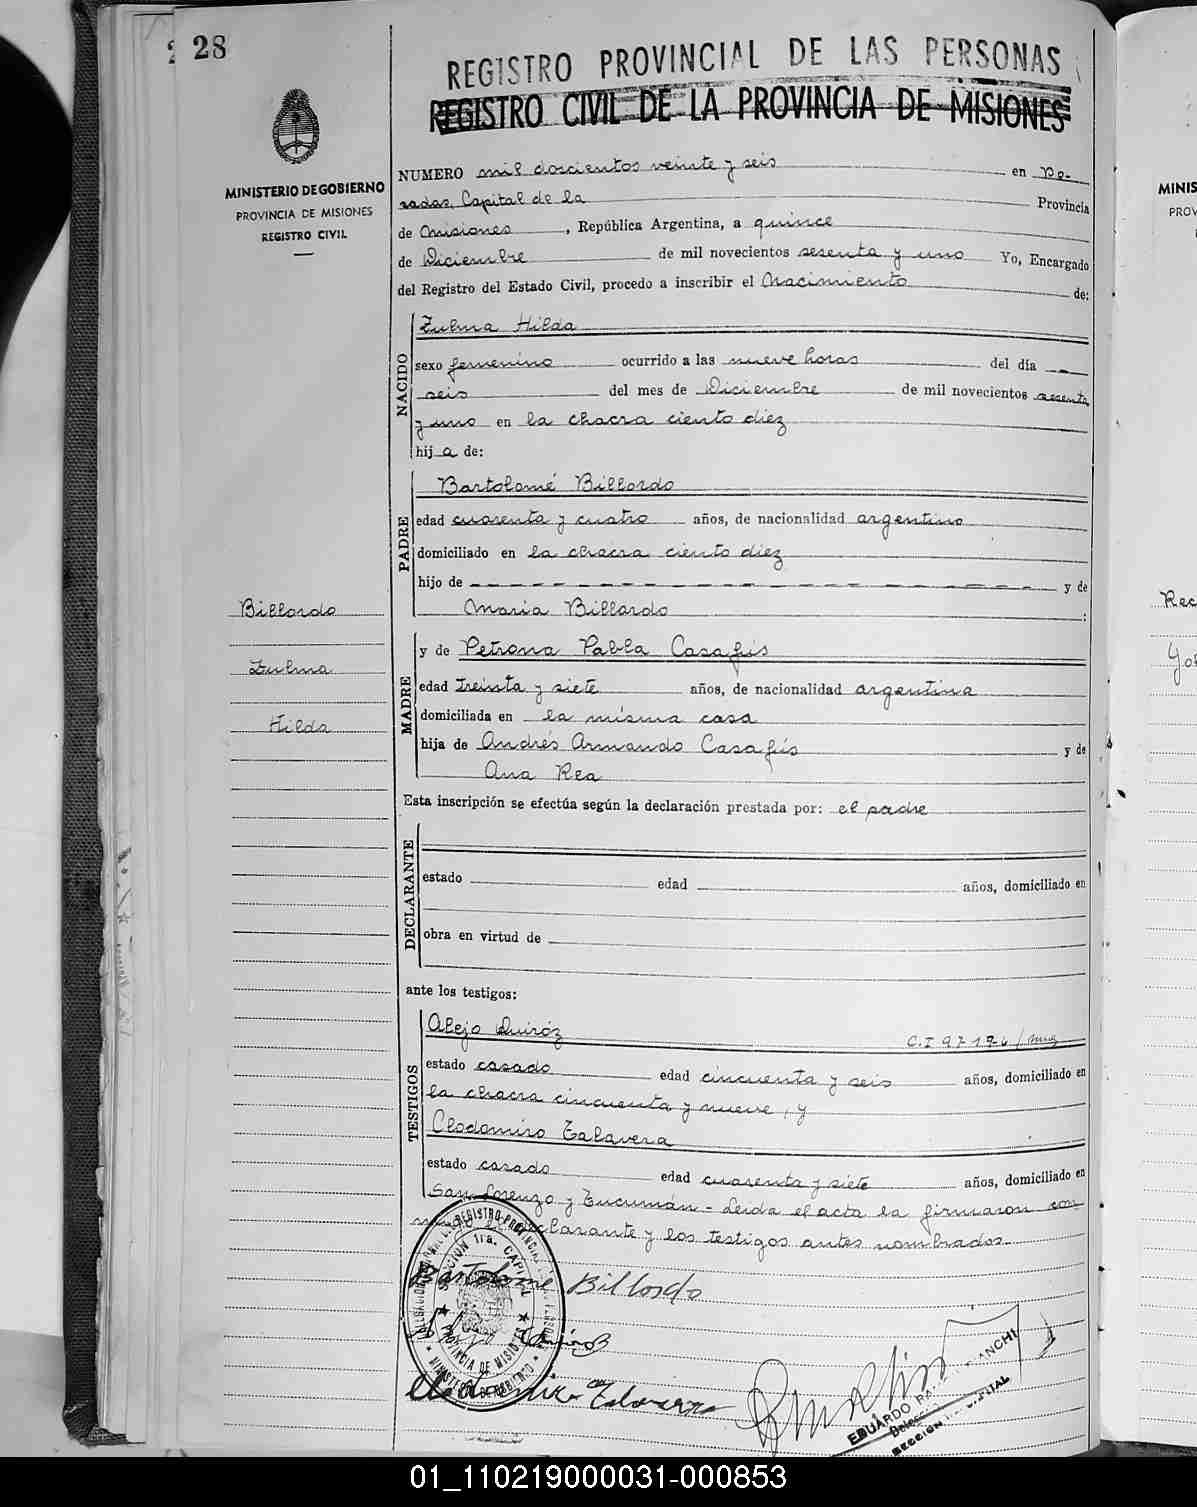 28
REGISTRO PROVINCIAL DE LAS PERSONAS
REGISTRO CIVIL DE LA PROVINCIA DE MISIONES
MINISTERIO DE GOBIERNO
PROVINCIA DE MISIONES
REGISTRO CIVIL
NUMERO mil doscientos veinte y seis en Po-
sadas, Capital de la Provincia
de Misiones, República Argentina, a quince
de Diciembre de mil novecientos sesenta y uno Yo, Encargado
del Registro del Estado Civil, procedo a inscribir el Nacimiento de:
NACIDO
Zulma Hilda
sexo femenino ocurrido a las nueve horas del día
seis del mes de Diciembre de mil novecientos sesenta
y uno en la chacra ciento diez
hija de:
PADRE
Bartolomé Billordo
edad cuarenta y cuatro años, de nacionalidad argentino
domiciliado en la chacra ciento diez
hijo de - - - - - - - - - - - - - - - - - - y de
Maria Billordo :
Billordo
Zulma
Hilda
MADRE
y de Petrona Pabla Casafús
edad treinta y siete años, de nacionalidad argentina
domiciliada en la misma casa
hija de Andrés Armando Casafús y de
Ana Rea
Esta inscripción se efectúa según la declaración prestada por: el padre
DECLARANTE
estado edad años, domiciliado en
obra en virtud de
ante los testigos:
TESTIGOS
Alejo Quiróz
C.I 97196
estado casado edad cincuenta y seis años, domiciliado en
la chacra cincuenta y nueve, y
Clodomiro Talavera
estado casado edad cuarenta y siete años, domiciliado en
San Lorenzo y Tucumán - Leida el acta la firmaron con-
migo el declarante y los testigos antes nombrados
Bartolome Billordo
REGISTRO PROVINCIAL
SECCION 1ra. CAPITAL
PROVINCIA DE MISIONES
MINISTERIO DE GOBIERNO
Clodomiro Talavera
EDUARDO
SECCION
MINIS
PROV
Rec
01_110219000031-000853